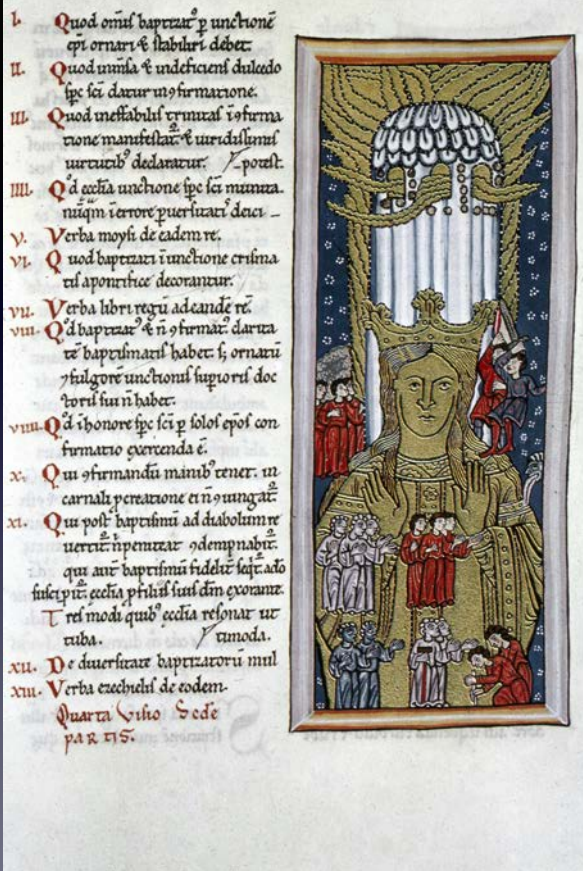 I. Quod omīs baptizat᷑ ꝑ unctionē
epī ornari ⁊ stabiliri debet.
II. Quod inmsa ⁊ indeficiens dulcedo
spc scī datur in ꝯfirmatione.
III. Quod ineffabilis trinitas ī ꝯfirma
tione manifestat᷑ ⁊ uiridissimis
uirtutib' declaratur. potest.
IIII. Qd ecclīa unctione spc scī munita.
nūqm ī errore puersitati deici
V. Verba moysi de eadem re.
VI. Quod baptizati ī unctione crisma
tis a pontifice decorantur.
VII. Verba libri regū ad eandē rē.
VIII. Qd baptizat᷑ ⁊ ñ ꝯfirmat᷑ clarita
tē baptismatis habet. s; ornatū
⁊ fulgorē unctionis supioris doc
toris sui ñ habet.
VIIII. Qd ī honore spc scī ꝑ solos epos con
firmatio exercenda ē.
X. Qui ꝯfirmandū manib' tenet. in
carnali pcreatione ei ñ ꝯiungat᷑.
XI. Qui post baptismū ad diabolum re
uertit᷑. ñ penitat ꝯdempnabit᷑.
qui aut baptismū fidelit seqt᷑. a dō
suscipit᷑. ecclīa ꝓ filiis suis dm̄ exorante.
Tres modi quib' ecclīa resonat ut
tuba. timoda.
XII. De diuersitate baptizatorū mul
XIII. Verba ezechielis de eodem.
Quarta Visio Secde
partis.